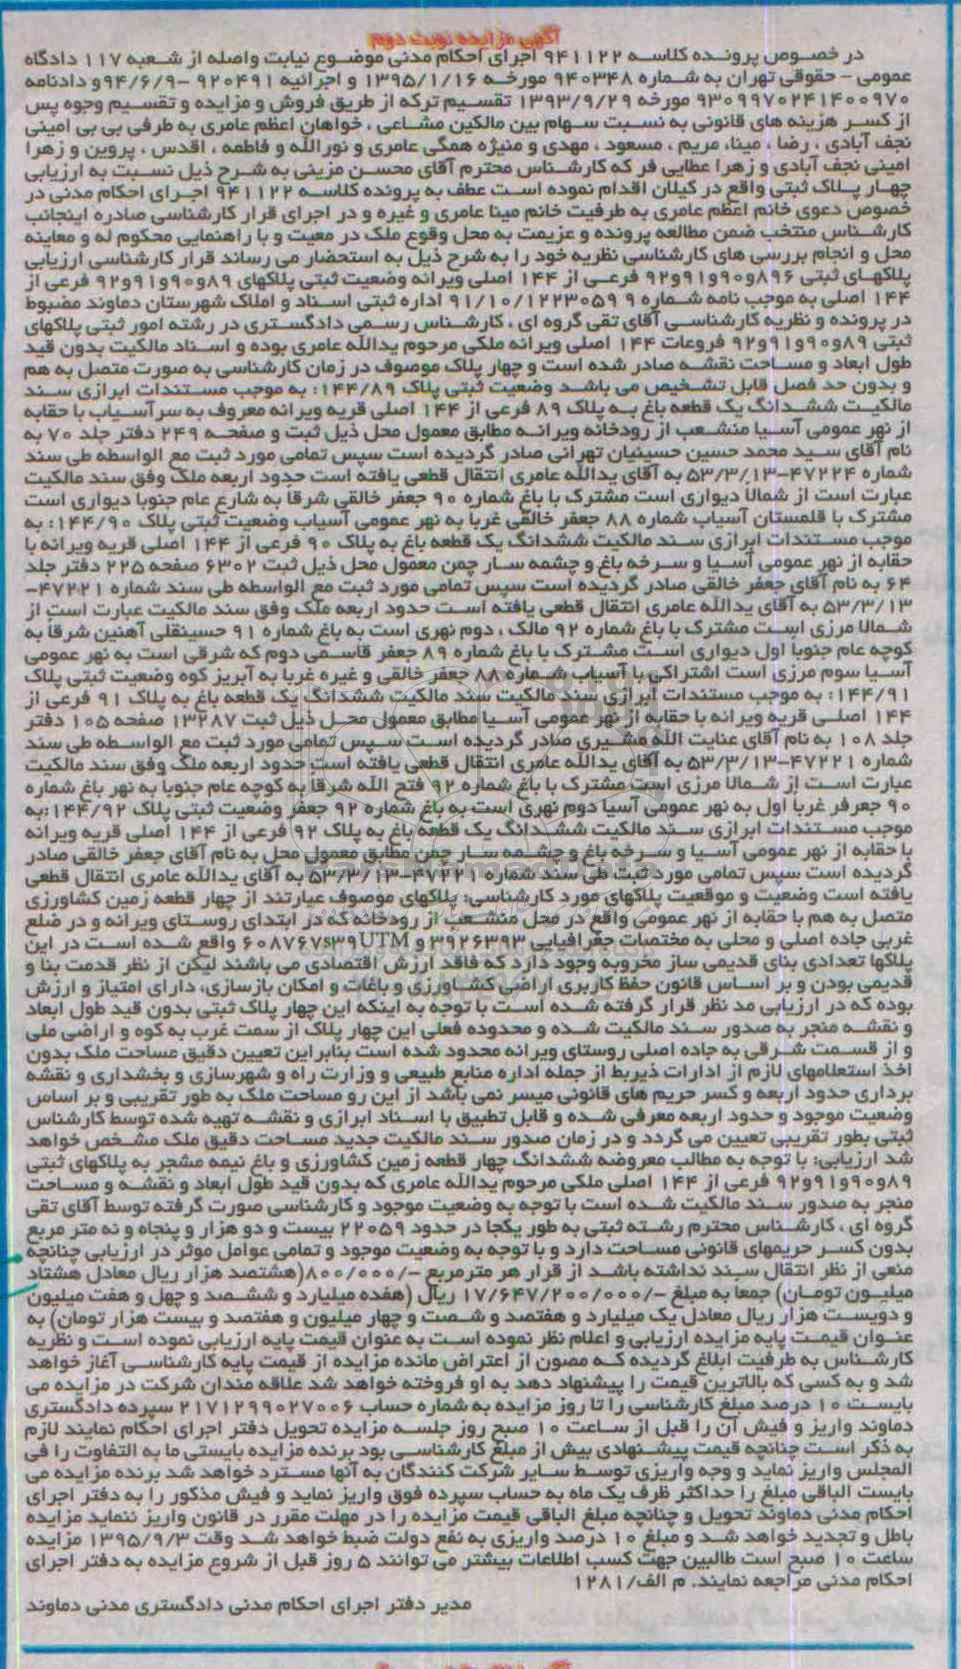 آگهی مزایده نوبت دوم
در خصوص پرونده کلاسه ۹۴۱۱۲۲ اجرای احکام مدنی موضوع نیابت واصله از شعبه ۱۱۷ دادگاه
عمومی - حقوقی تهران به شماره ۹۴۰۳۴۸ مورخه ۱۳۹۵/۱/۱۶ و اجرائیه ۹۲۰۴۹۱ -۹۴/۶/۹ و دادنامه
۹۳۰۹۹۷۰۲۴۱۴۰۰۹۷۰ مورخه ۱۳۹۳/۹/۲۹ تقسیم ترکه از طریق فروش و مزایده و تقسیم وجوه پس
از کسر هزینه های قانونی به نسبت سهام بین مالکین مشاعی ، خواهان اعظم عامری به طرفی بی بی امینی
نجف آبادی ، رضا ، مینا، مریم ، مسعود ، مهدی و منیژه همگی عامری و نورالله و فاطمه ، اقدس ، پروین و زهرا
امینی نجف آبادی و زهرا عطایی فر که کارشناس محترم آقای محسن مزینی به شرح ذیل نسبت به ارزیابی
چهار پلاک ثبتی واقع در گیلان اقدام نموده است عطف به پرونده کلاسه ۹۴۱۱۲۲ اجرای احکام مدنی در
خصوص دعوی خانم اعظم عامری به طرفیت خانم مینا عامری و غیره و در اجرای قرار کارشناسی صادره اینجانب
کارشناس منتخب ضمن مطالعه پرونده و عزیمت به محل وقوع ملک در معیت و با راهنمایی محکوم له و معاینه
محل و انجام بررسی های کارشناسی نظریه خود را به شرح ذیل به استحضار می رساند قرار کارشناسی ارزیابی
پلاکهای ثبتی ۸۹۶و۹۰و۹۱و۹۲ فرعی از ۱۴۴ اصلی ویرانه وضعیت ثبتی پلاکهای ۸۹و۹۰و۹۱و۹۲ فرعی از
۱۴۴ اصلی به موجب نامه شماره ۹ ۹۱/۱۰/۱۲۲۳۰۵۹ اداره ثبتی اسناد و املاک شهرستان دماوند مضبوط
در پرونده و نظریه کارشناسی آقای تقی گروه ای ، کارشناس رسمی دادگستری در رشته امور ثبتی پلاکهای
ثبتی ۸۹و۹۰و۹۱و۹۲ فروعات ۱۴۴ اصلی ویرانه ملکی مرحوم یدالله عامری بوده و اسناد مالکیت بدون قید
طول ابعاد و مساحت نقشه صادر شده است و چهار پلاک موصوف در زمان کارشناسی به صورت متصل به هم
و بدون حد فصل قابل تشخیص می باشد وضعیت ثبتی پلاک ۱۴۴/۸۹: به موجب مستندات ابرازی سند
مالکیت ششدانگ یک قطعه باغ به پلاک ۸۹ فرعی از ۱۴۴ اصلی قریه ویرانه معروف به سرآسیاب با حقابه
از نهر عمومی آسیا منشعب از رودخانه ویرانه مطابق معمول محل ذیل ثبت و صفحه ۲۴۹ دفتر جلد ۷۰ به
نام آقای سید محمد حسین حسینیان تهرانی صادر گردیده است سپس تمامی مورد ثبت مع الواسطه طی سند
شماره ۴۷۲۲۴-۵۳/۳/۱۳ به آقای یدالله عامری انتقال قطعی یافته است حدود اربعه ملک وفق سند مالکیت
عبارت است از شمالا دیواری است مشترک با باغ شماره ۹۰ جعفر خالقی شرقا به شارع عام جنوبا دیواری است
مشترک با قلمستان آسیاب شماره ۸۸ جعفر خالقی غربا به نهر عمومی آسیاب وضعیت ثبتی پلاک ۱۴۴/۹۰: به
موجب مستندات ابرازی سند مالکیت ششدانگ یک قطعه باغ به پلاک ۹۰ فرعی از ۱۴۴ اصلی قریه ویرانه با
حقابه از نهر عمومی آسیا و سرخه باغ و چشمه سار چمن معمول محل ذیل ثبت ۶۳۰۲ صفحه ۲۲۵ دفتر جلد
۶۴ به نام آقای جعفر خالقی صادر گردیده است سپس تمامی مورد ثبت مع الواسطه طی سند شماره ۴۷۲۲۱-
۵۳/۳/۱۳ به آقای یدالله عامری انتقال قطعی یافته است حدود اربعه ملک وفق سند مالکیت عبارت است از
شمالا مرزی است مشترک با باغ شماره ۹۲ مالک ، دوم نهری است به باغ شماره ۹۱ حسینقلی آهنین شرقا به
کوچه عام جنوبا اول دیواری است مشترک با باغ شماره ۸۹ جعفر قاسمی دوم که شرقی است به نهر عمومی
آسیا سوم مرزی است اشتراکی با آسیاب شماره ۸۸ جعفر خالقی و غیره غربا به آبریز کوه وضعیت ثبتی پلاک
۱۴۴/۹۱: به موجب مستندات ابرازی سند مالکیت سند مالکیت ششدانگ یک قطعه باغ به پلاک ۹۱ فرعی از
۱۴۴ اصلی قریه ویرانه با حقابه از نهر عمومی آسیا مطابق معمول محل ذیل ثبت ۱۳۲۸۷ صفحه ۱۰۵ دفتر
جلد ۱۰۸ به نام آقای عنایت الله مشیری صادر گردیده است سپس تمامی مورد ثبت مع الواسطه طی سند
شماره ۴۷۲۲۱-۵۳/۳/۱۳ به آقای یدالله عامری انتقال قطعی یافته است حدود اربعه ملک وفق سند مالکیت
عبارت است از شمالا مرزی است مشترک با باغ شماره ۹۲ فتح الله شرقا به کوچه عام جنوبا به نهر باغ شماره
۹۰ جعرفر غربا اول به نهر عمومی آسیا دوم نهری است به باغ شماره ۹۲ جعفر وضعیت ثبتی پلاک ۱۴۴/۹۲:به
موجب مستندات ابرازی سند مالکیت ششدانگ یک قطعه باغ به پلاک ۹۲ فرعی از ۱۴۴ اصلی قریه ویرانه
با حقابه از نهر عمومی آسیا و سرخه باغ و چشمه سار چمن مطابق معمول محل به نام آقای جعفر خالقی صادر
گردیده است سپس تمامی مورد ثبت طی سند شماره ۴۷۲۲۱-۵۳/۳/۱۳ به آقای یدالله عامری انتقال قطعی
یافته است وضعیت و موقعیت پلاکهای مورد کارشناسی: پلاکهای موصوف عبارتند از چهار قطعه زمین کشاورزی
متصل به هم با حقابه از نهر عمومی واقع در محل منشعب از رودخانه که در ابتدای روستای ویرانه و در ضلع
غربی جاده اصلی و محلی به مختصات جغرافیایی ۳۹۲۶۳۹۳ و ۶۰۸۷۶۷s۳۹UTM واقع شده است در این
پلاکها تعدادی بنای قدیمی ساز مخروبه وجود دارد که فاقد ارزش اقتصادی می باشند لیکن از نظر قدمت بنا و
قدیمی بودن و بر اساس قانون حفظ کاربری اراضی کشاورزی و باغات و امکان بازسازی، دارای امتیاز و ارزش
بوده که در ارزیابی مد نظر قرار گرفته شده است با توجه به اینکه این چهار پلاک ثبتی بدون قید طول ابعاد
و نقشه منجر به صدور سند مالکیت شده و محدوده فعلی این چهار پلاک از سمت غرب به کوه و اراضی ملی
و از قسمت شرقی به جاده اصلی روستای ویرانه محدود شده است بنابراین تعیین دقیق مساحت ملک بدون
اخذ استعلامهای لازم از ادارات ذیربط از جمله اداره منابع طبیعی و وزارت راه و شهرسازی و بخشداری و نقشه
برداری حدود اربعه و کسر حریم های قانونی میسر نمی باشد از این رو مساحت ملک به طور تقریبی و بر اساس
وضعیت موجود و حدود اربعه معرفی شده و قابل تطبیق با اسناد ابرازی و نقشه تهیه شده توسط کارشناس
ثبتی بطور تقریبی تعیین می گردد و در زمان صدور سند مالکیت جدید مساحت دقیق ملک مشخص خواهد
شد ارزیابی: با توجه به مطالب معروضه ششدانگ چهار قطعه زمین کشاورزی و باغ نیمه مشجر به پلاکهای ثبتی
۸۹و۹۰و۹۱و۹۲ فرعی از ۱۴۴ اصلی ملکی مرحوم یدالله عامری که بدون قید طول ابعاد و نقشه و مساحت
منجر به صدور سند مالکیت شده است با توجه به وضعیت موجود و کارشناسی صورت گرفته توسط آقای تقی
گروه ای ، کارشناس محترم رشته ثبتی به طور یکجا در حدود ۲۲۰۵۹ بیست و دو هزار و پنجاه و نه متر مربع
بدون کسر حریمهای قانونی مساحت دارد و با توجه به وضعیت موجود و تمامی عوامل موثر در ارزیابی چنانچه
منعی از نظر انتقال سند نداشته باشد از قرار هر مترمربع -/۸۰۰/۰۰۰(هشتصد هزار ریال معادل هشتاد
میلیون تومان) جمعا به مبلغ -/۱۷/۶۴۷/۲۰۰/۰۰۰ ریال (هفده میلیارد و ششصد و چهل و هفت میلیون
و دویست هزار ریال معادل یک میلیارد و هفتصد و شصت و چهار میلیون و هفتصد و بیست هزار تومان) به
عنوان قیمت پایه مزایده ارزیابی و اعلام نظر نموده است به عنوان قیمت پایه ارزیابی نموده است و نظریه
کارشناس به طرفیت ابلاغ گردیده که مصون از اعتراض مانده مزایده از قیمت پایه کارشناسی آغاز خواهد
شد و به کسی که بالاترین قیمت را پیشنهاد دهد به او فروخته خواهد شد علاقه مندان شرکت در مزایده می
بایست ۱۰ درصد مبلغ کارشناسی را تا روز مزایده به شماره حساب ۲۱۷۱۲۹۹۰۲۷۰۰۶ سپرده دادگستری
دماوند واریز و فیش آن را قبل از ساعت ۱۰ صبح روز جلسه مزایده تحویل دفتر اجرای احکام نمایند لازم
به ذکر است چنانچه قیمت پیشنهادی بیش از مبلغ کارشناسی بود برنده مزایده بایستی ما به التفاوت را فی
المجلس واریز نماید و وجه واریزی توسط سایر شرکت کنندگان به آنها مسترد خواهد شد برنده مزایده می
بایست الباقی مبلغ را حداکثر ظرف یک ماه به حساب سپرده فوق واریز نماید و فیش مذکور را به دفتر اجرای
احکام مدنی دماوند تحویل و چنانچه مبلغ الباقی قیمت مزایده را در مهلت مقرر در قانون واریز ننماید مزایده
باطل و تجدید خواهد شد و مبلغ ۱۰ درصد واریزی به نفع دولت ضبط خواهد شد وقت ۱۳۹۵/۹/۳ مزایده
ساعت ۱۰ صبح است طالبین جهت کسب اطلاعات بیشتر می توانند ۵ روز قبل از شروع مزایده به دفتر اجرای
احکام مدنی مراجعه نمایند. م الف/۱۲۸۱
مدیر دفتر اجرای احکام مدنی دادگستری مدنی دماوند